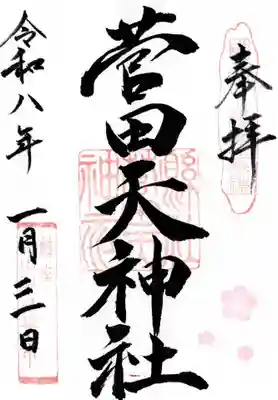 奉拝
菅田天神社
令和八年 一月三日